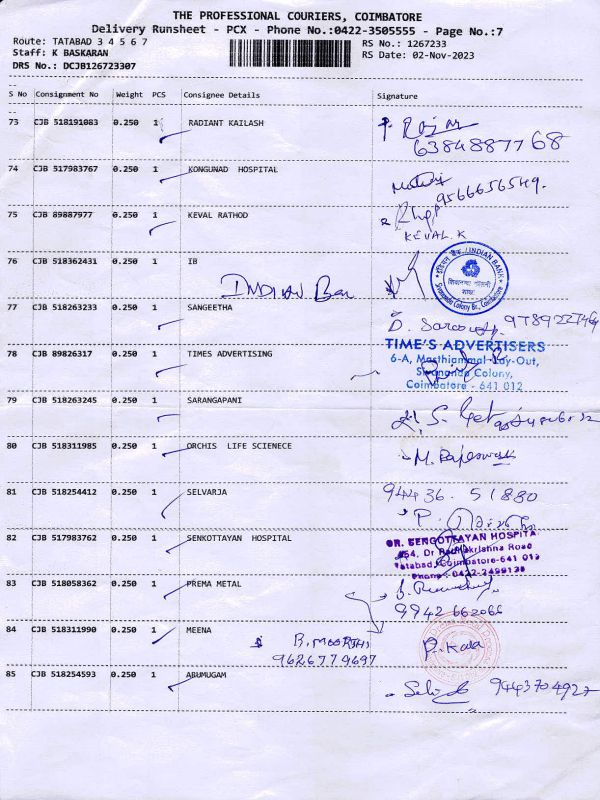 THE PROFESSIONAL COURIERS, COIMBATORE
Delivery Runsheet - PCX - Phone No.:0422-3505555 - Page No.:7
Route: TATABAD 3 4 5 6 7
RS No.: 1267233
Staff: K BASKARAN
RS Date: 02-Nov-2023
DRS No.: DCJB126723307
S No Consignment No Weight PCS Consignee Details Signature
73 CJB 518191083 0.250 1 RADIANT KAILASH
6384887768
74 CJB 517983767 0.250 1 KONGUNAD HOSPITAL
9566656549.
75 CJB 89887977 0.250 1 KEVAL RATHOD
KEVAL.K
76 CJB 518362431 0.250 1 IB
INDIAN Ban
INDIAN BANK
77 CJB 518263233 0.250 1 SANGEETHA
78 CJB 89826317 1 0.250 1 TIMES ADVERTISING
TIME'S ADVERTISERS
6-A, Masthiammal Lay-Out,
Sivananda Colony,
Coimbatore - 641 012
79 CJB 518263245 0.250 1 SARANGAPANI
80 CJB 518311985 0.250 1 ORCHIS LIFE SCIENECE
M. Rajeswari
81 CJB 518254412 0.250 1 SELVARJA
94436. 51880
82 CJB 517983762 0.250 1 SENKOTTAYAN HOSPITAL
DR. SENGOTTAYAN HOSPITA
454, Dr Radhakrishna Road
Tatabad, Coimbatore-641 012
83 CJB 518058362 0.250 1 PREMA METAL
9942662066
84 CJB 518311990 0.250 1 MEENA
B. MOORTHI
9626779697
P. Kala
85 CJB 518254593 0.250 1 ARUMUGAM